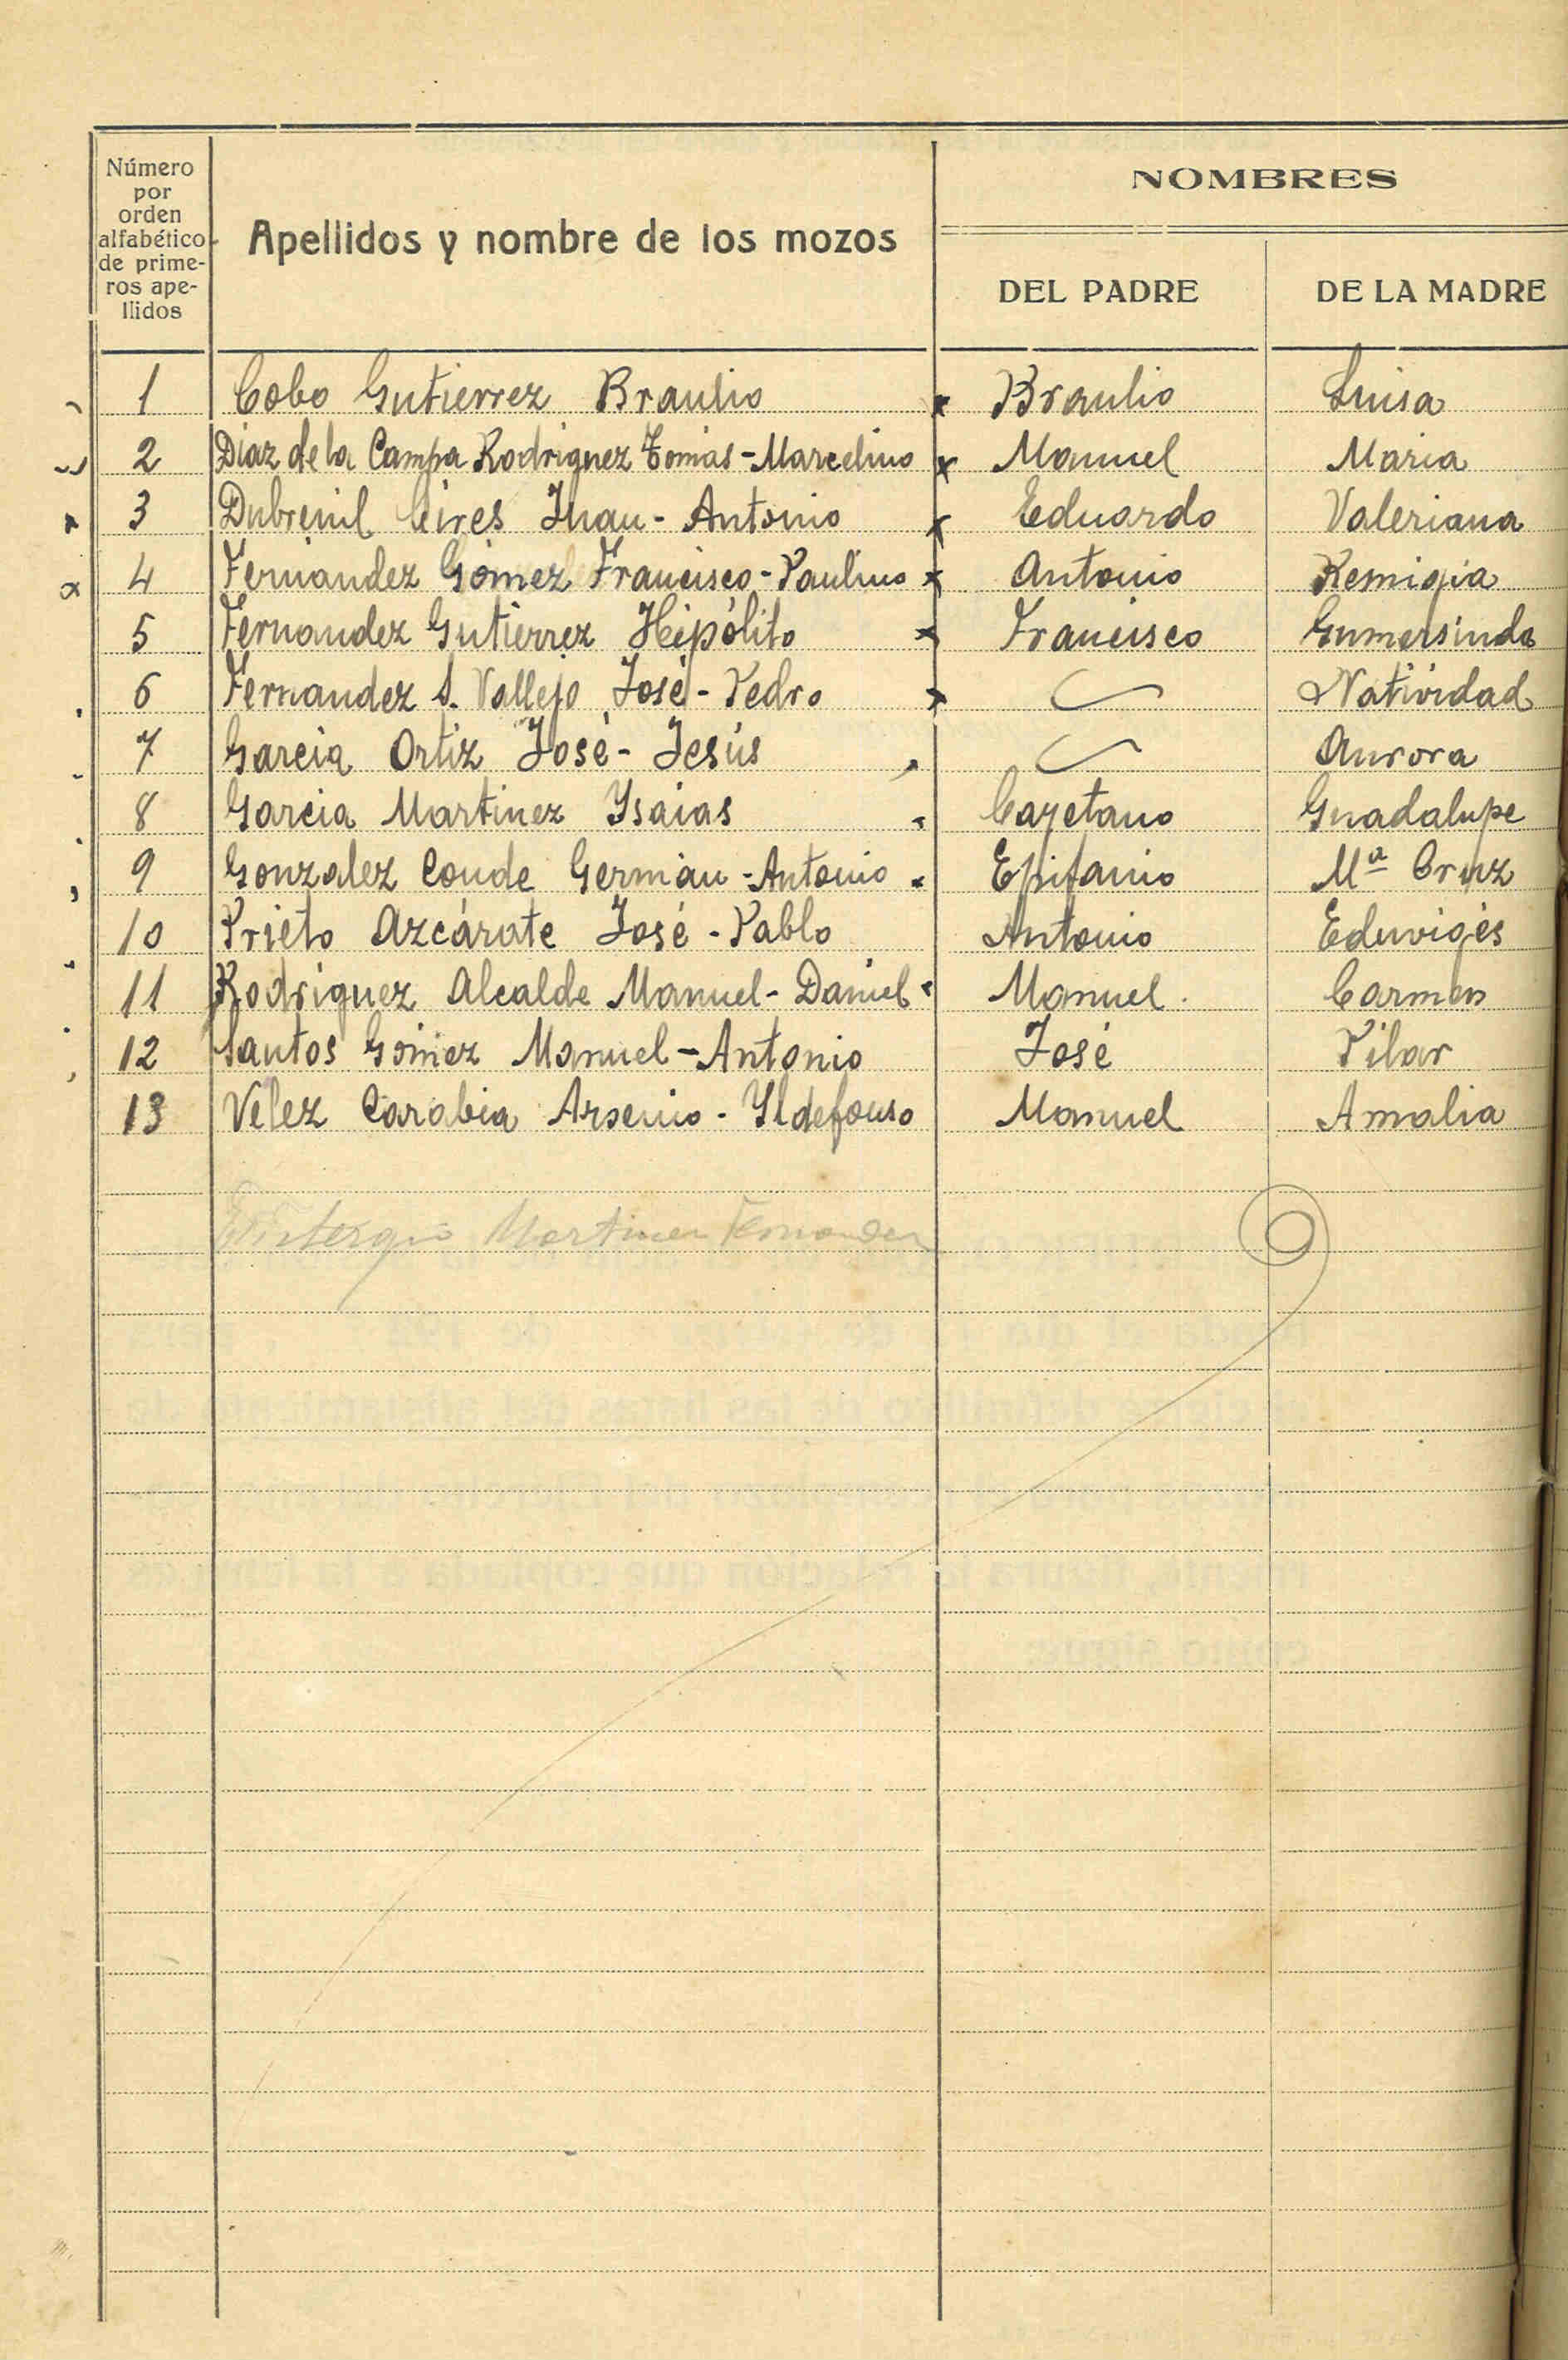 Número
por
orden
alfabético
de prime-
ros ape-
llidos
Apellidos y nombre de los mozos
NOMBRES
DEL PADRE
DE LA MADRE
1 Cobo Gutierrez Braulio Braulio Luisa
2 Diaz de la Campa Rodriguez Tomás-Marcelino Manuel Maria
3 Dubreuil Cires Juan-Antonio Eduardo Valeriana
4 Fernandez Gómez Francisco-Paulino Antonio Remigia
5 Fernandez Gutierrez Hipólito Francisco Gumersinda
6 Fernandez S. Vallejo José-Pedro Natividad
7 Garcia Ortiz José-Jesús Aurora
8 Garcia Martinez Ysaias Cayetano Guadalupe
9 Gonzalez Conde Germán-Antonio Epifanio Mª Cruz
10 Prieto Azcárate José-Pablo Antonio Eduvigés
11 Rodriguez Alcalde Manuel-Daniel Manuel Carmen
12 Santos Gómez Manuel-Antonio José Pilar
13 Vélez Carabia Arsenio-Yldefonso Manuel Amalia
Martinez Fernandez